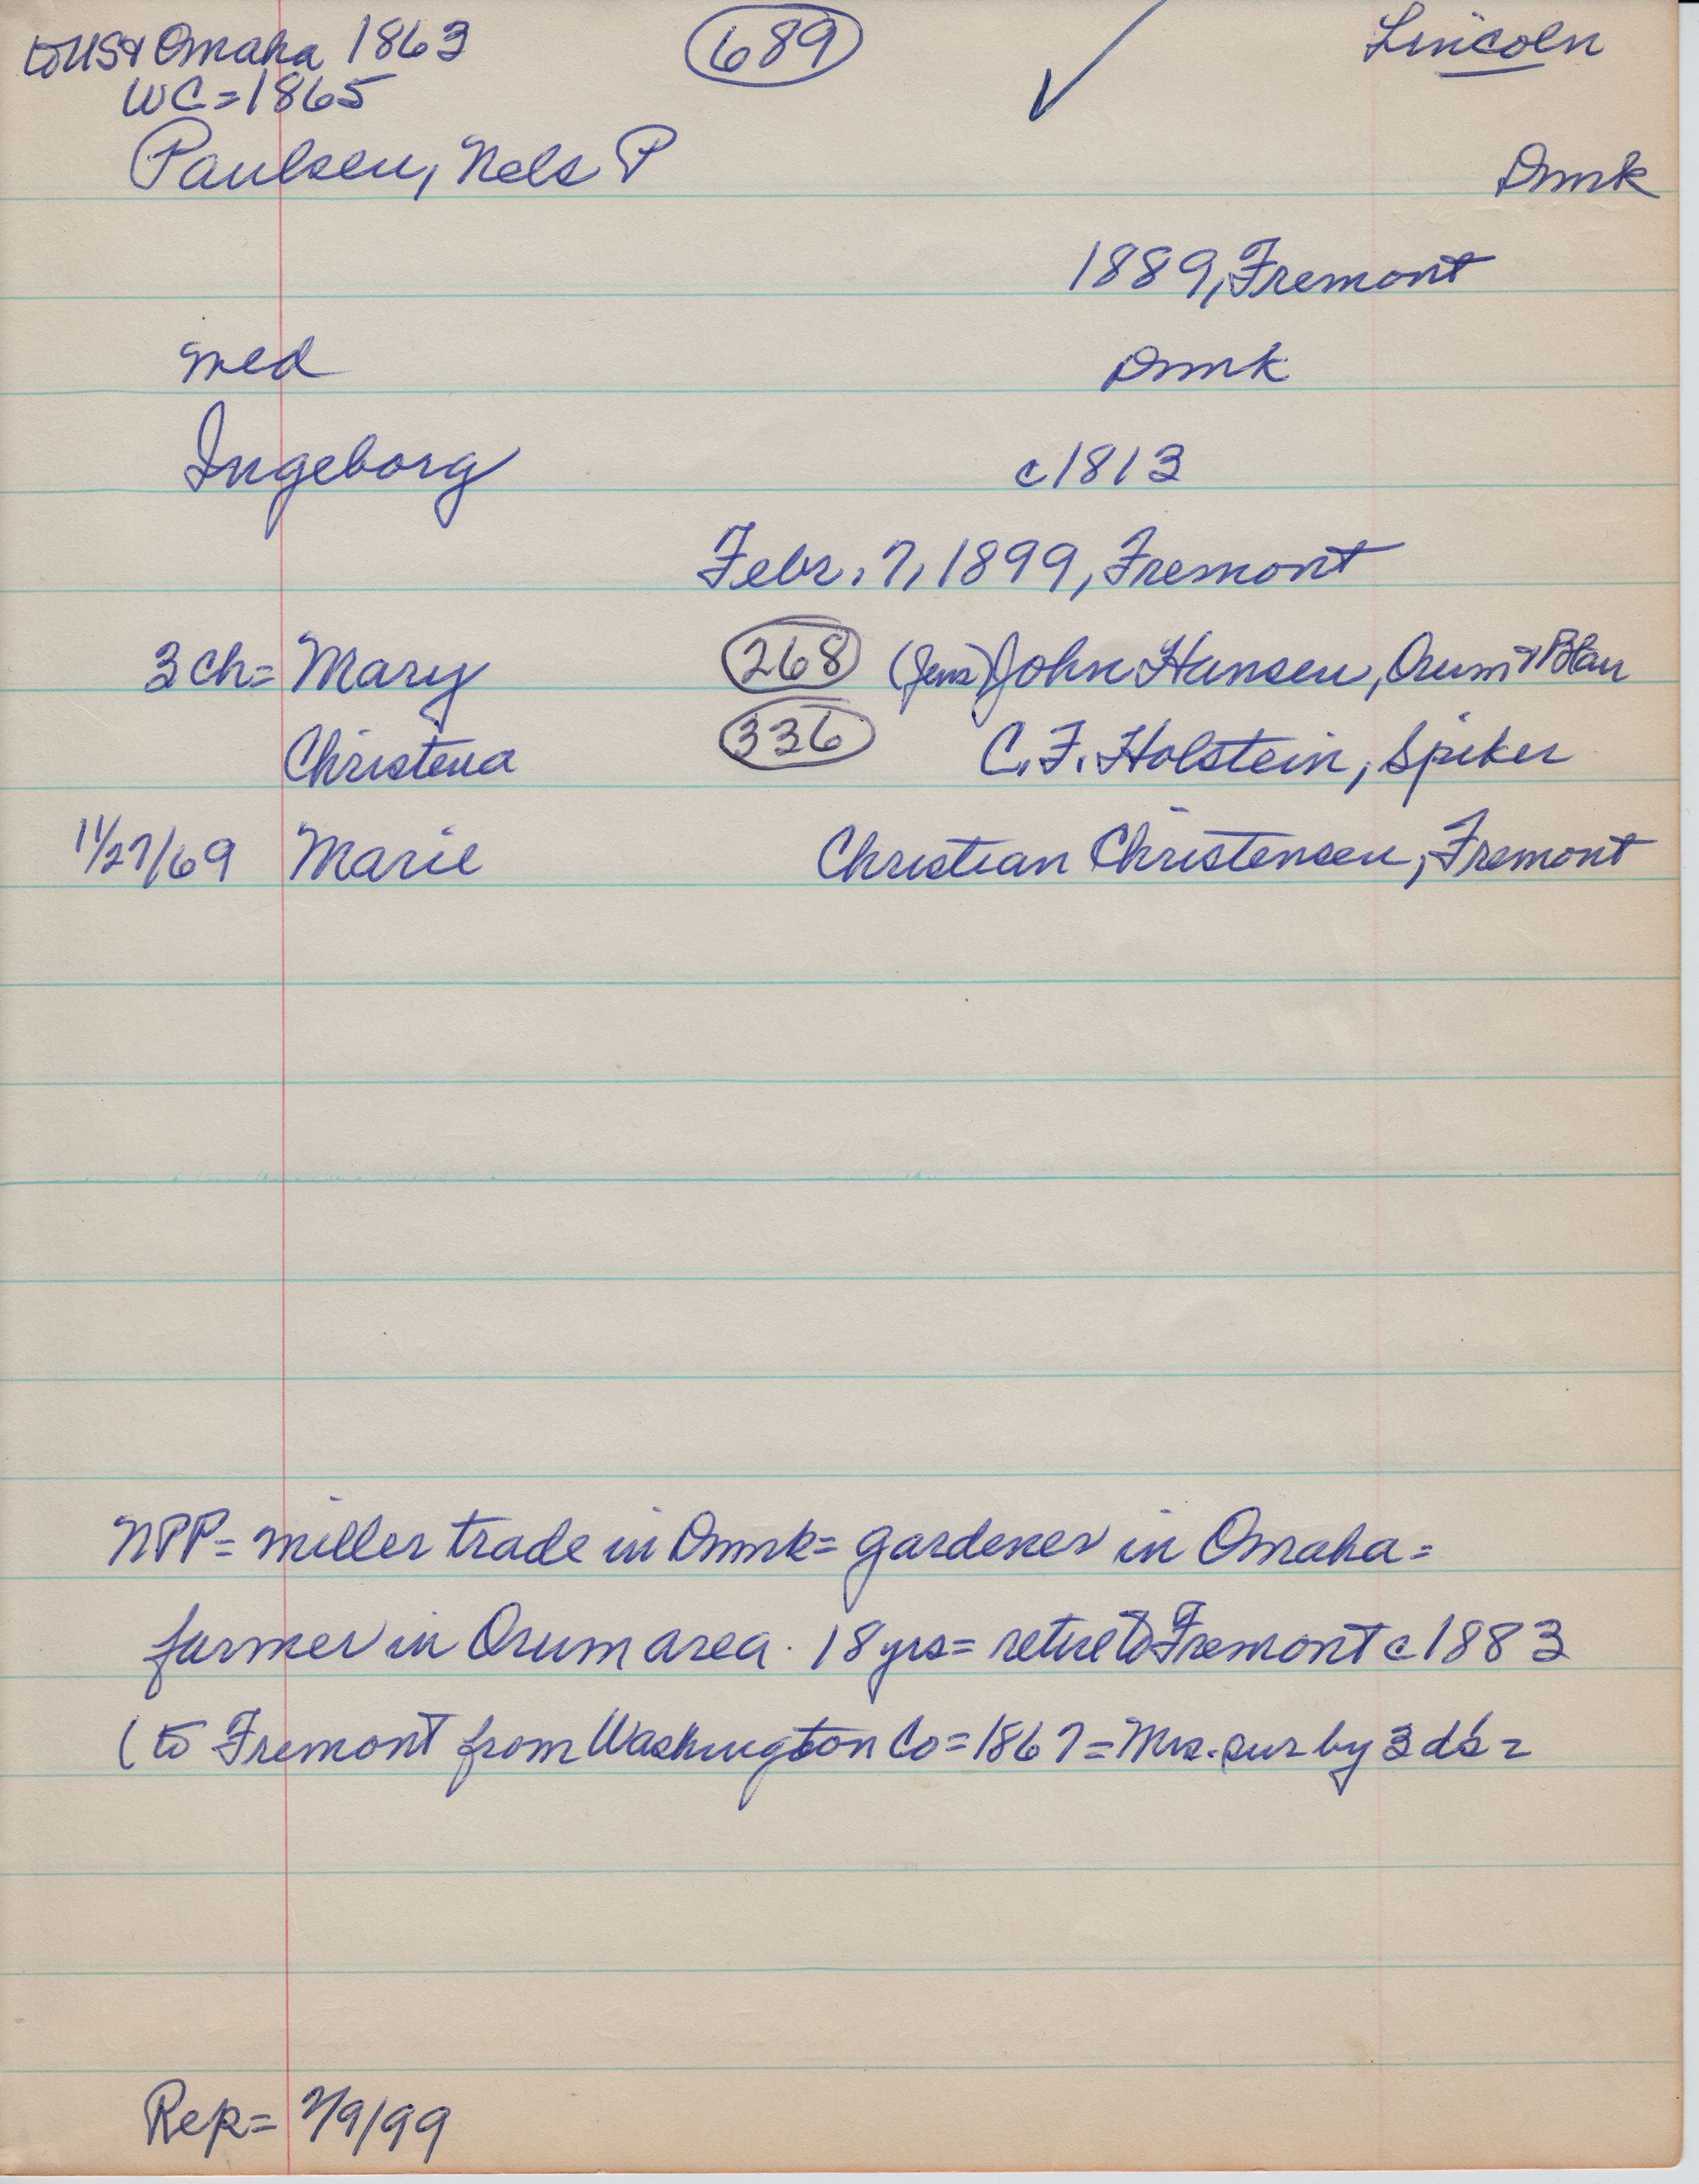 to US & Omaha 1863
689
Lincoln
WC = 1865
Paulsen, Nels P
Dnmk
1889, Fremont
med
Dnmk
Ingeborg
c1813
Febr. 7, 1899, Fremont
3 ch = Mary 268 (Jens) John Hansen, Orum & Blair
Christena 336 C. F. Holstein, Spiker
11/27/69 Marie Christian Christensen, Fremont
NPP = miller trade in Dnmk = gardener in Omaha =
farmer in Orum area. 18 yrs = retire to Fremont c1883
(to Fremont from Washington Co = 1867 = Mrs. sur by 3 d's =
Rep = 2/9/99